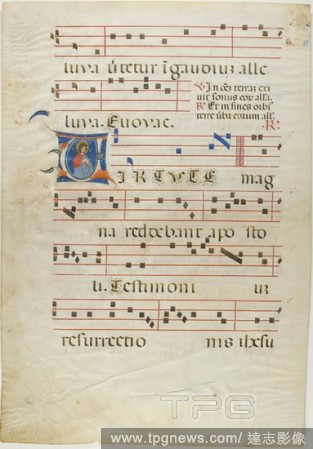 luya v̄tetur ī gaudiuz alle
luya. Evovae.
℣ In oēi terraz exi
uit sonus eor alla.
℟ Et in fines orbi
terre úba eorum all.
℟.
VIRTUTE mag
na reddebant apo sto
li. Testimoni uz
resurrectio nis ihxsu
TPG
www.tpgnews.com/ 達志影像